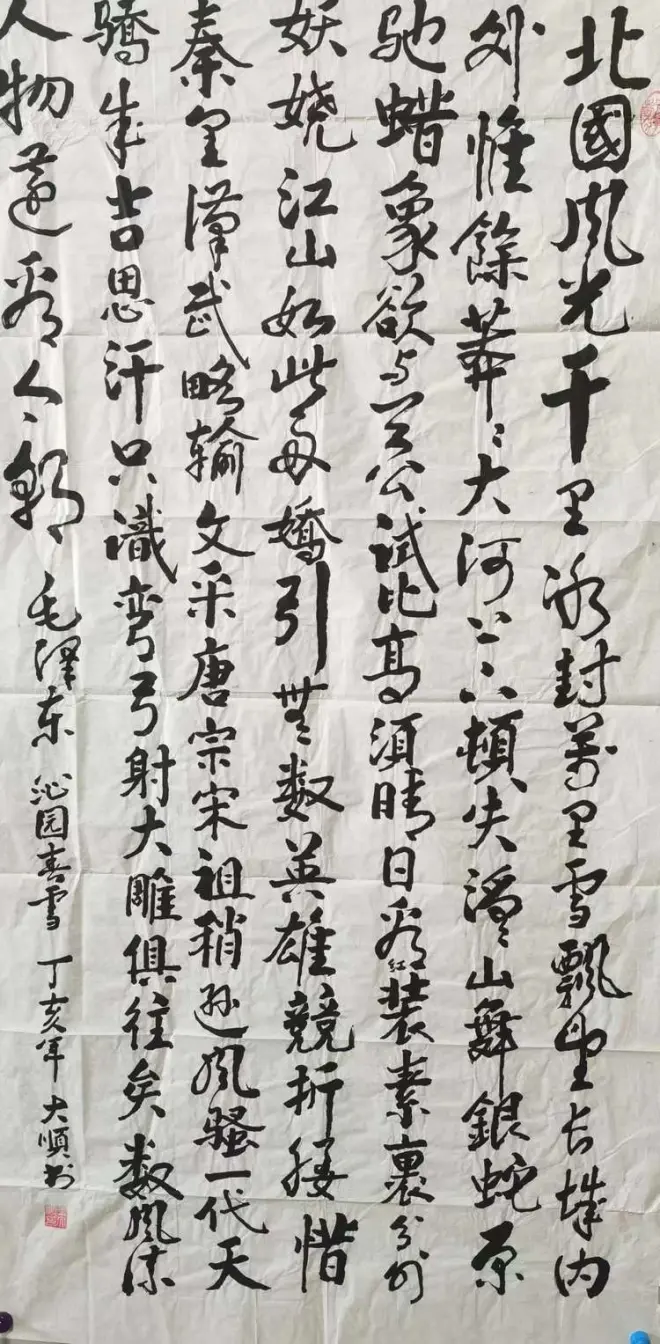 北國風光千里冰封萬里雪飄望长城内
外惟餘莽々大河上下頓失滔々山舞銀蛇原
驰蜡象欲与天公試比高須晴日看红装素裹分外
妖娆江山如此多嬌引無数英雄競折腰惜
秦皇漢武略输文采唐宗宋祖稍逊風騷一代天
骄成吉思汗只識弯弓射大雕俱往矣数風流
人物還看今朝 毛泽东 沁园春雪 丁亥年 大順书